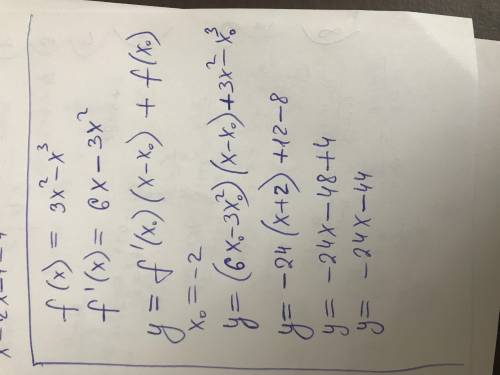 f(x) = 3x² - x³
f'(x) = 6x - 3x²
y = f'(x₀)(x-x₀) + f(x₀)
x₀ = -2
y = (6x₀-3x₀²)(x-x₀)+3x²-x₀³
y = -24(x+2)+12-8
y = -24x-48+4
y = -24x-44